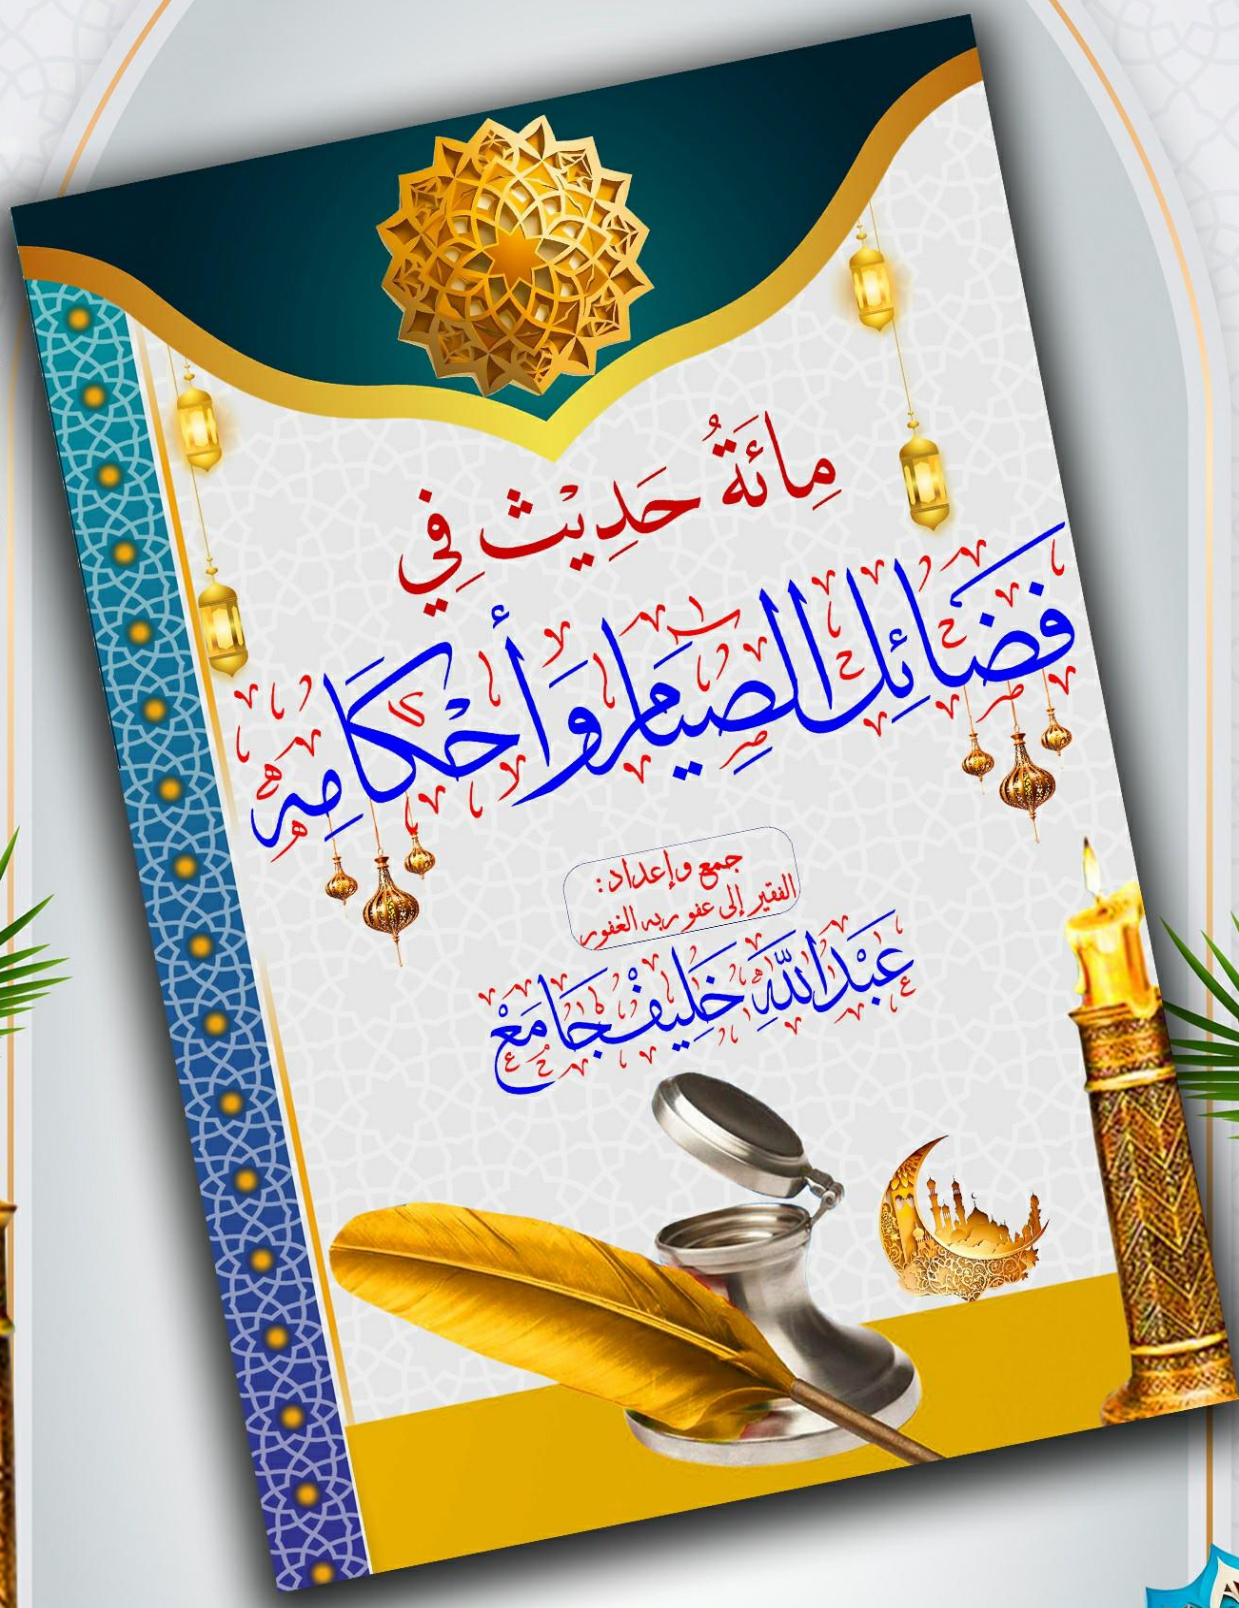 مِائَةُ حَدِيْث فِي
فَضَائِل الصِّيَام وَأَحْكَامِه
جمع وإعداد:
الفقير إلى عفو ربه الغفور
عَبْدُاللَّهِ خَلِيْف جَامَعْ